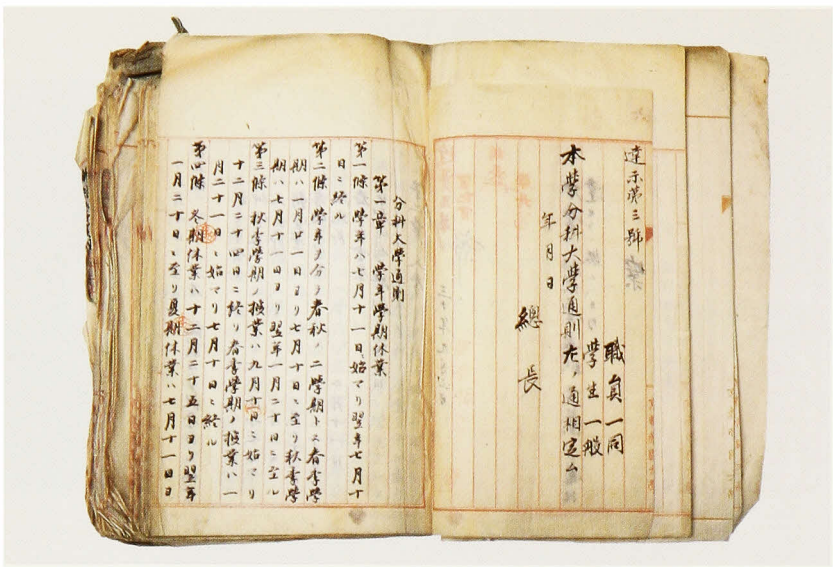 達示第三號
職員一同
學生一般
本學分科大學通則左ノ通相定ム
年月日
總長
分科大學通則
第一章 學年學期休業
第一條 學年ハ七月十一日ニ始マリ翌年七月十
日ニ終ル
第二條 學年ヲ分テ春秋ノ二學期トス春季學
期ハ一月廿一日ヨリ七月十日ニ至リ秋季學
期ハ七月十一日ヨリ翌年一月二十日ニ至ル
第三條 秋季學期ノ授業ハ九月十一日ニ始マリ
十二月二十四日ニ終リ春季學期ノ授業ハ一
月二十一日ニ始マリ七月十日ニ終ル
第四條 冬期休業ハ十二月二十五日ヨリ翌年
一月二十日ニ至リ夏期休業ハ七月十一日ヨ